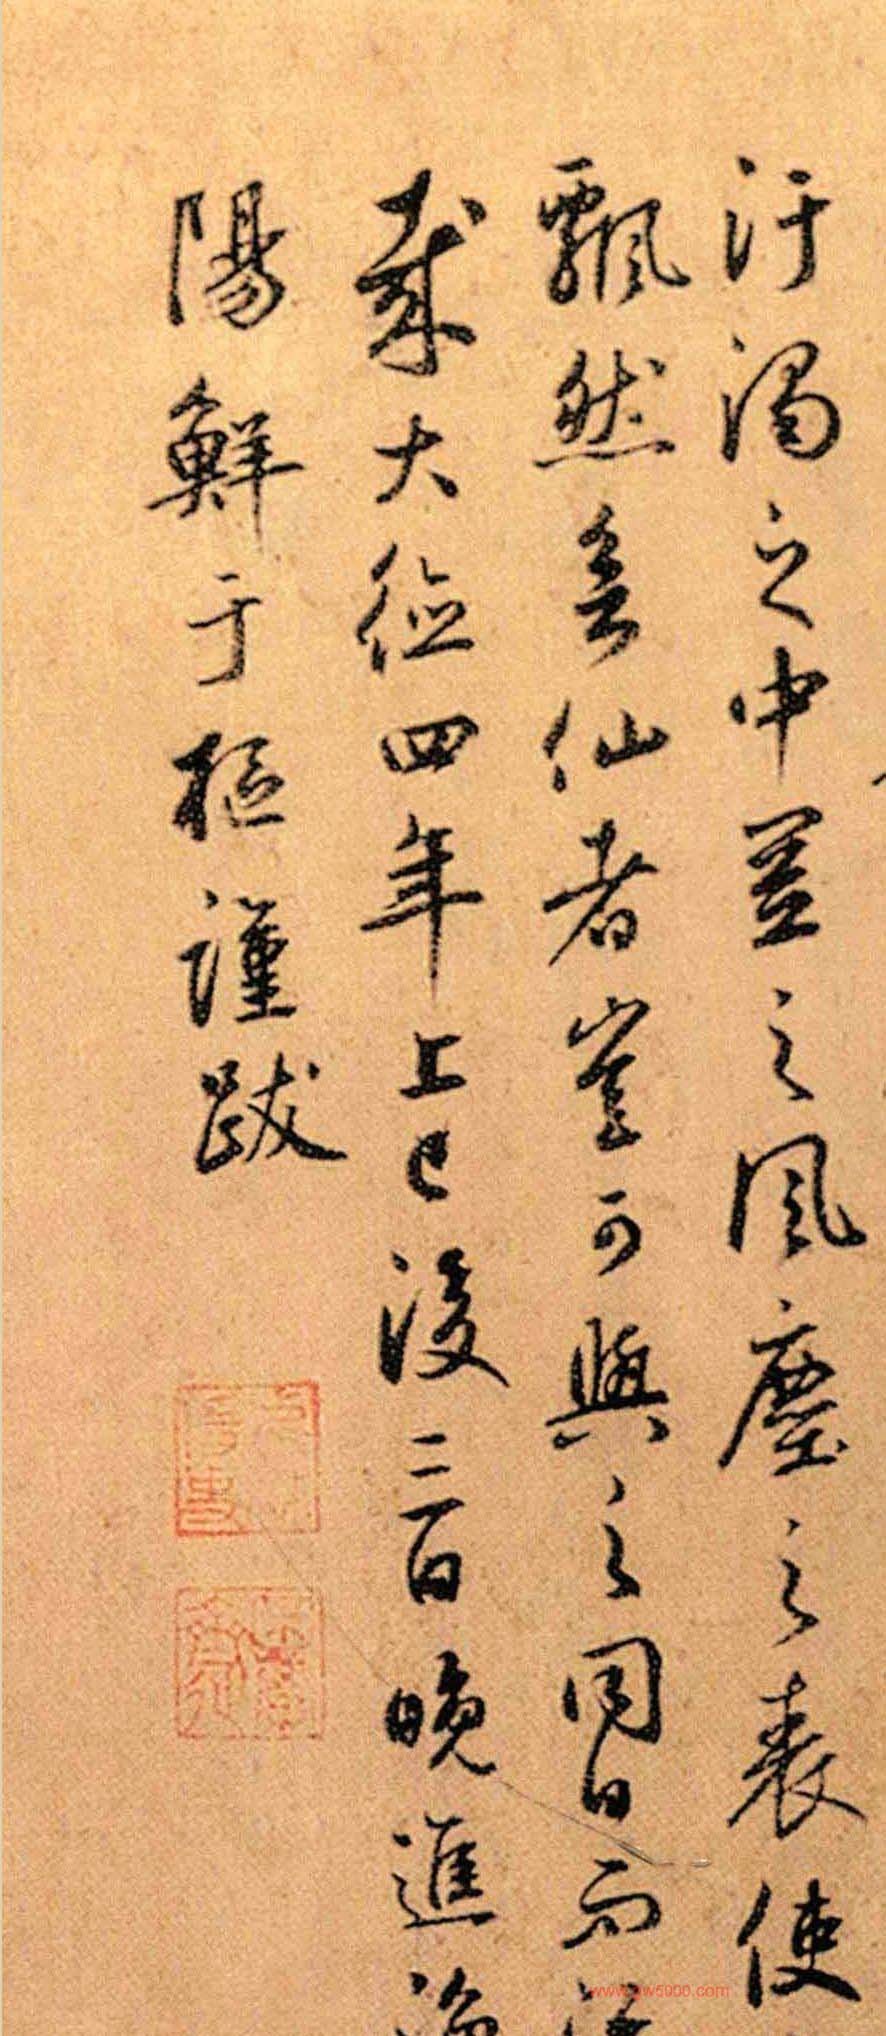 汙濁之中置之風塵之表使
飄然仙者豈可與之同日而
哉大德四年上巳後三日晚進漁
陽鮮于樞謹跋
www.gw5000.com